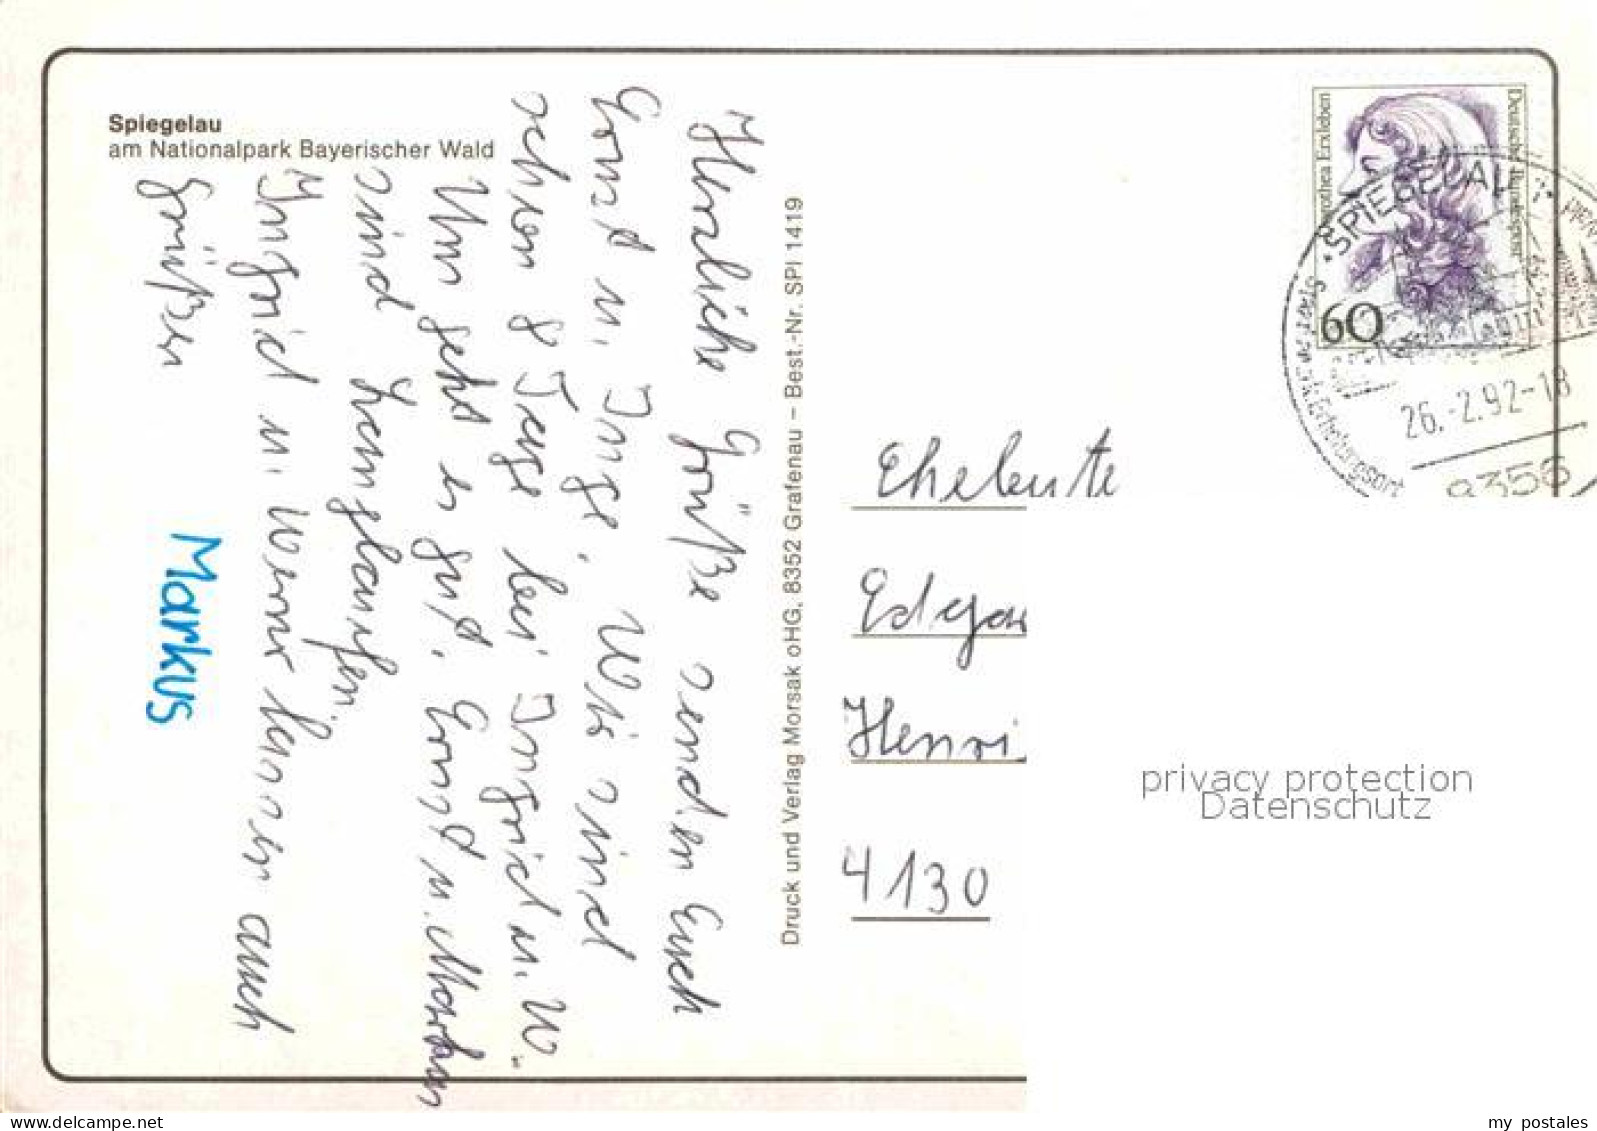 Spiegelau
am Nationalpark Bayerischer Wald
Herzliche Grüße senden Euch
Horst u. Inge, Wir sind
schon 8 Tage bei Ingrid u. W.
Uns geht es gut. Horst u. Markus
sind Langlaufen.
Ingrid u. Werner lassen auch
Grüßen
Markus
Druck und Verlag Morsak oHG, 8352 Grafenau – Best.-Nr. SPI 1419
Deutsche Bundespost
Dorothea Erxleben
60
SPIEGELAU
26.-2.92-18
8356
Staatl. anerk. Erholungsort
Eheleute
Edgar
Henri
4130
privacy protection
Datenschutz
delcampe.net
my_postales